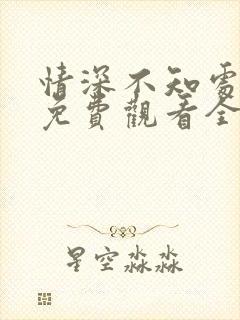 情深不知處
免費觀看全
星空淼淼